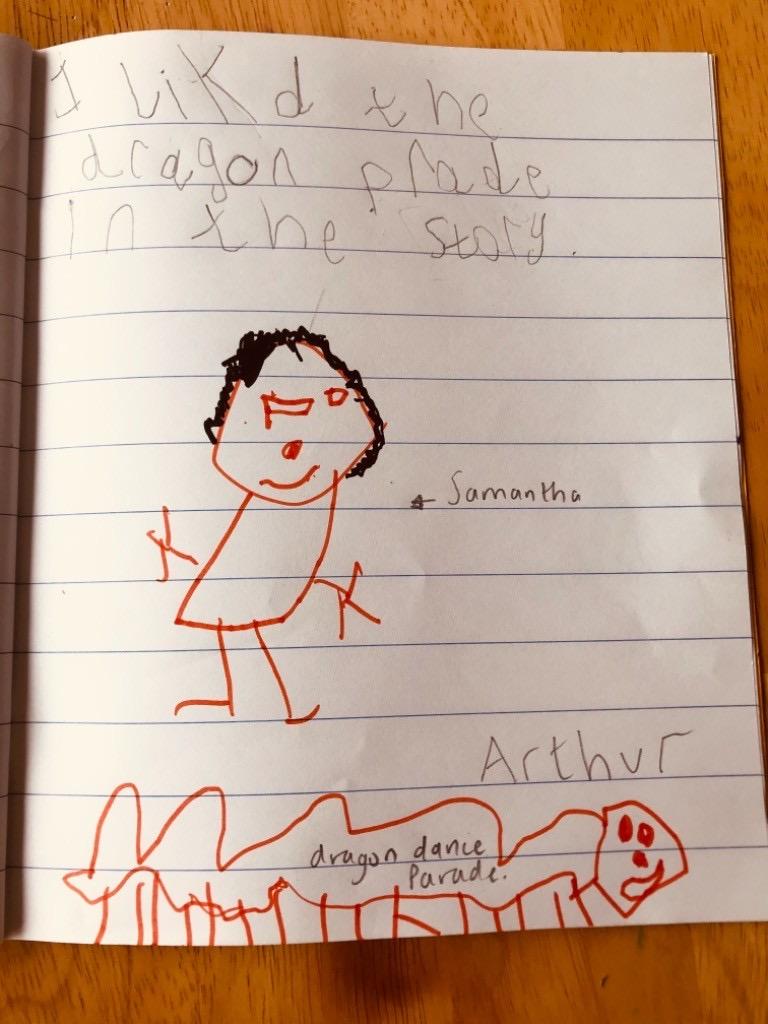 I likd the
dragon prade
in the story.
← Samantha
Arthur
dragon dance
Parade.